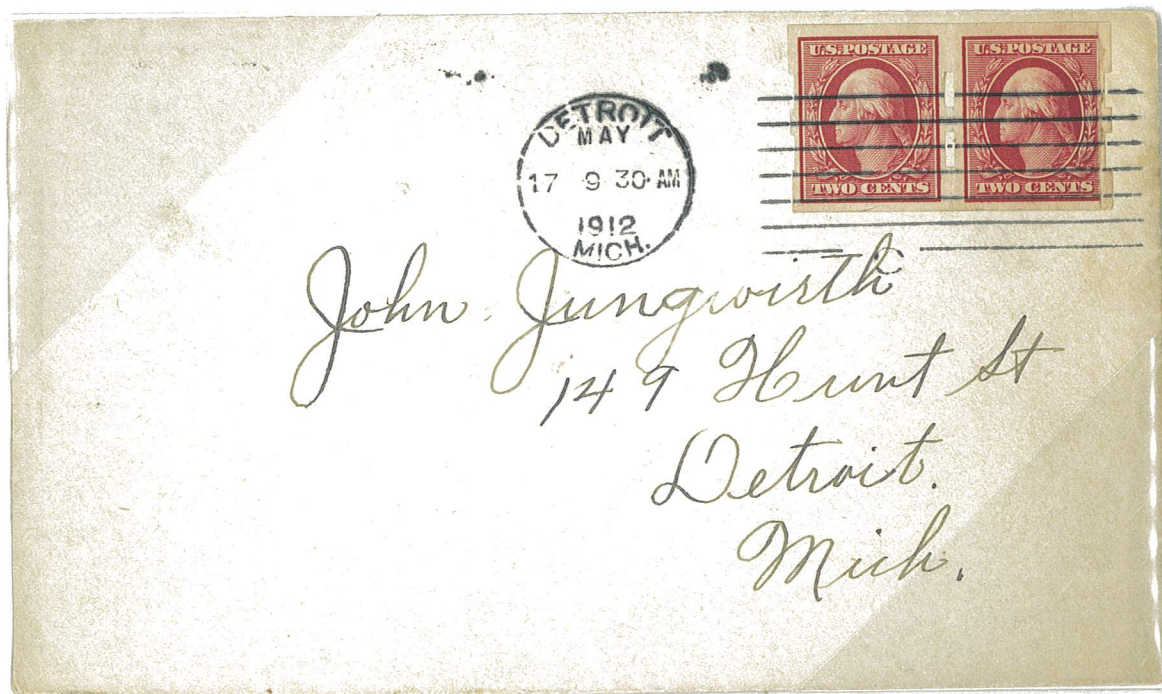 U.S.POSTAGE U.S.POSTAGE
TWO CENTS TWO CENTS
DETROIT
MAY
17 9 30 AM
1912
MICH.
John Jungwirth
149 Hunt St
Detroit.
Mich.